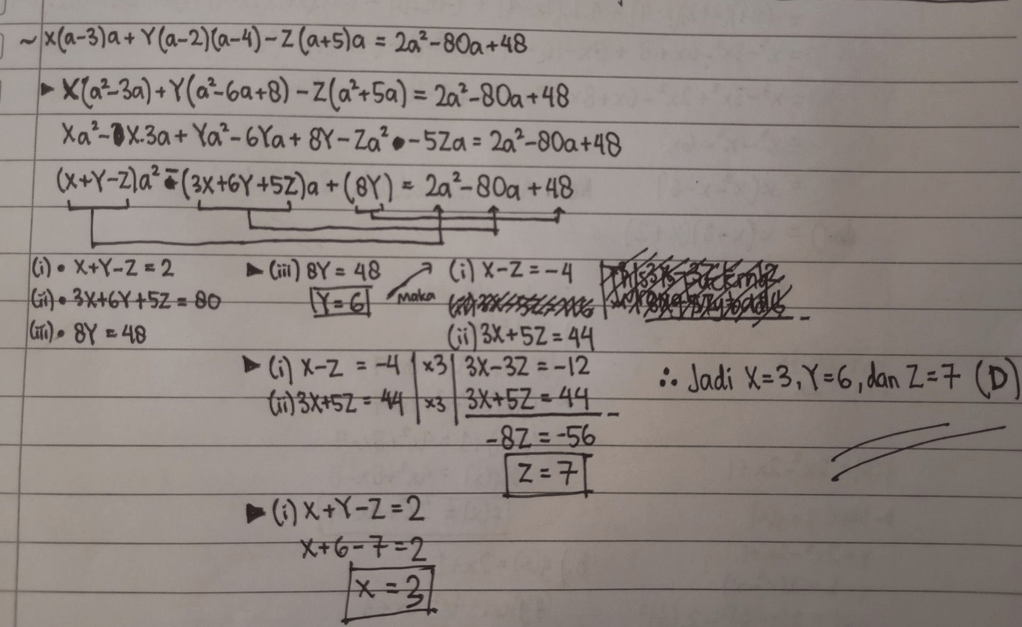 ~ X(a-3)a + Y(a-2)(a-4) - Z(a+5)a = 2a²-80a+48
▶ X(a²-3a) + Y(a²-6a+8) - Z(a²+5a) = 2a²-80a+48
Xa²-X.3a + Ya²-6Ya + 8Y - Za² - 5Za = 2a²-80a+48
(X+Y-Z)a² - (3X+6Y+5Z)a + (8Y) = 2a²-80a+48
(i) • X+Y-Z = 2
(ii) • 3X+6Y+5Z = 80
(iii) • 8Y = 48
▶ (iii) 8Y = 48
Y = 6
maka
(i) X-Z = -4
(ii) 3X+5Z = 44
▶ (i) X-Z = -4 | x3 | 3X-3Z = -12
(ii) 3X+5Z = 44 | x3 | 3X+5Z = 44 -
-8Z = -56
Z = 7
▶ (i) X+Y-Z = 2
X+6-7 = 2
X = 3
∴ Jadi X=3, Y=6, dan Z=7 (D)